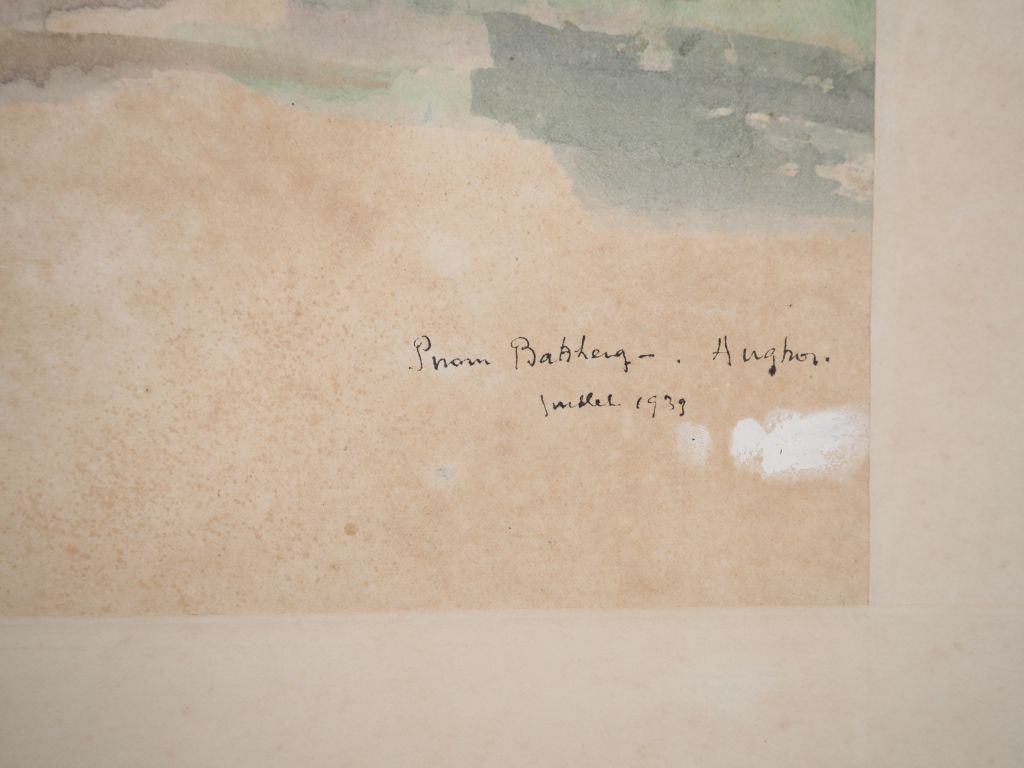 Pnom Bakheng - . Angkor.
Juillet 1939